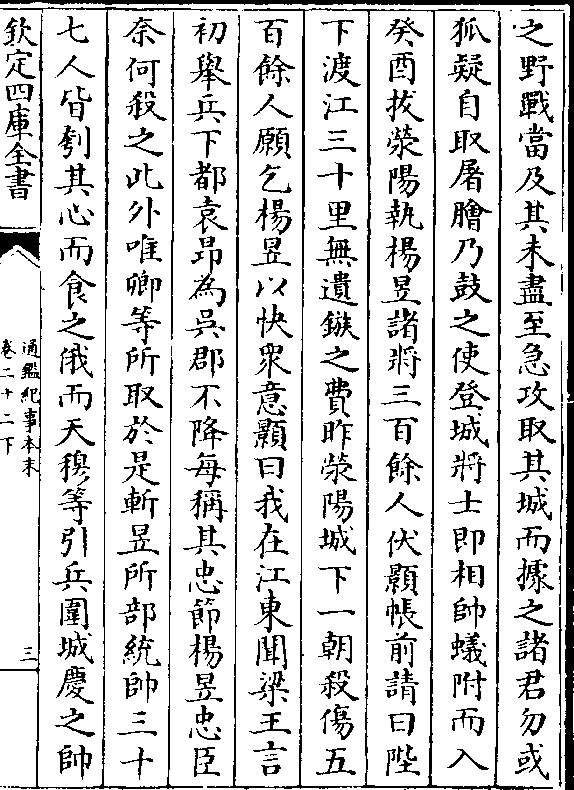 之野戰當及其未盡至急攻取其城而據之諸君勿或
狐疑自取屠膾乃鼓之使登城將士即相帥蟻附而入
癸酉拔滎陽執楊昱諸將三百餘人伏顥帳前請曰陛
下渡江三十里無遺鏃之費昨滎陽城下一朝殺傷五
百餘人願乞楊昱以快衆意顥曰我在江東聞梁王言
初舉兵下都袁昻為吳郡不降每稱其忠節楊昱忠臣
奈何殺之此外唯卿等所取於是斬昱所部統帥三十
七人皆刳其心而食之俄而天穆等引兵圍城慶之帥
欽定四庫全書
通鑑紀事本末
卷二十二下
三